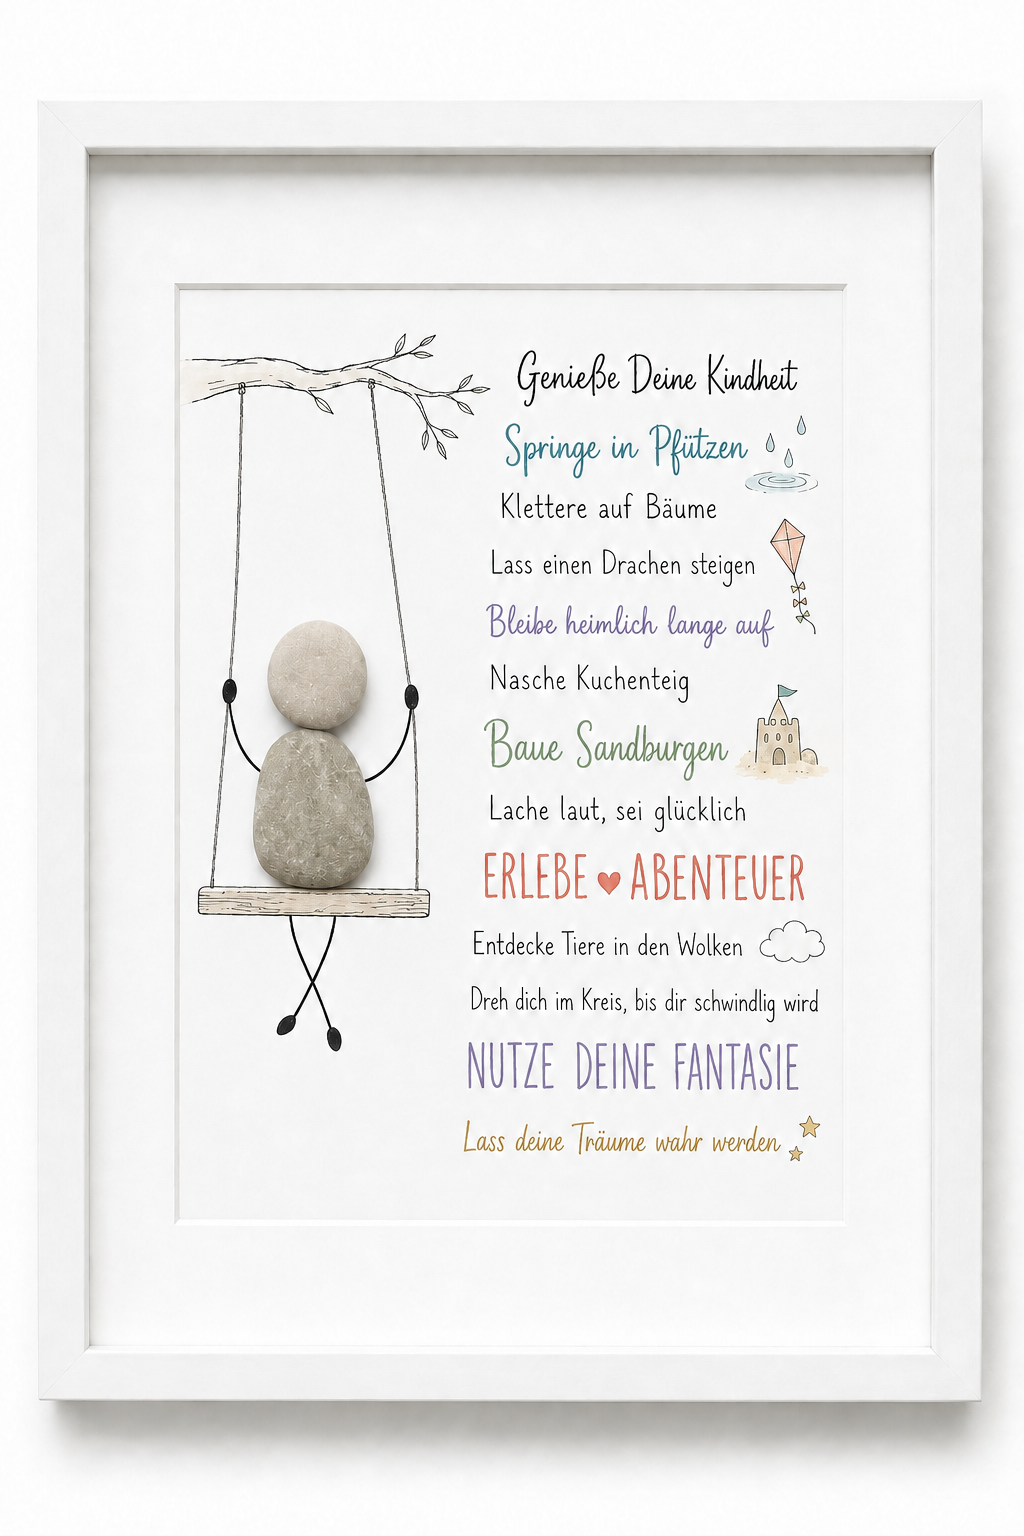 Genieße Deine Kindheit
Springe in Pfützen
Klettere auf Bäume
Lass einen Drachen steigen
Bleibe heimlich lange auf
Nasche Kuchenteig
Baue Sandburgen
Lache laut, sei glücklich
ERLEBE ♥ ABENTEUER
Entdecke Tiere in den Wolken
Dreh dich im Kreis, bis dir schwindlig wird
NUTZE DEINE FANTASIE
Lass deine Träume wahr werden